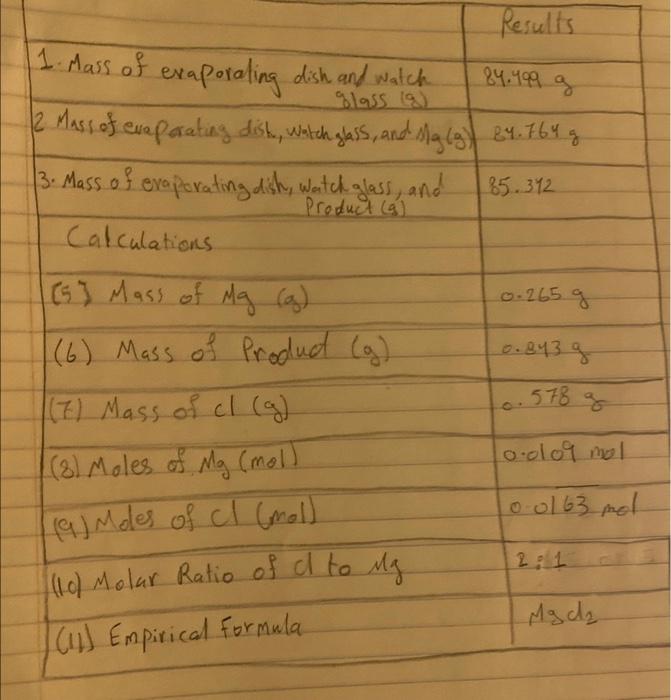 Results
1. Mass of evaporating dish and watch glass (g) 84.499 g
2 Mass of evaporating dish, watch glass, and Mg (g) 84.764 g
3. Mass of evaporating dish, watch glass, and Product (g) 85.342
Calculations
(5) Mass of Mg (g) 0.265 g
(6) Mass of Product (g) 0.843 g
(7) Mass of cl (g) 0.578 g
(8) Moles of Mg (mol) 0.0109 mol
(9) Moles of Cl (mol) 0.0163 mol
(10) Molar Ratio of cl to Mg 2:1
(11) Empirical Formula Mgcl2